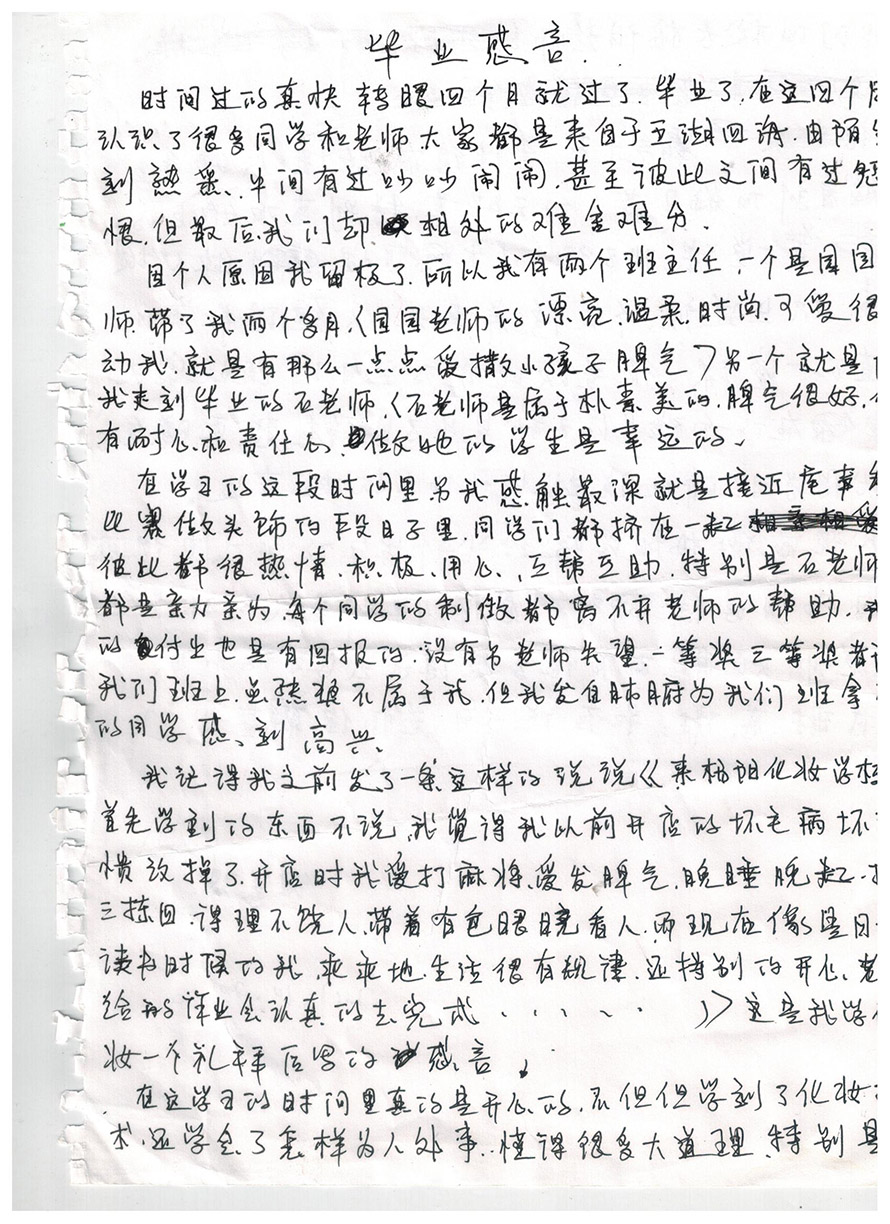 毕业感言.
时间过的真快转眼四个月就过了.毕业了,在这四个月
认识了很多同学和老师大家都是来自于五湖四海.由陌生
到熟悉、中间有过吵吵闹闹,甚至彼此之间有过怨
恨.但最后我们却相处的难舍难分.
因个人原因我留极了.所以我有两个班主任,一个是园园
师.带了我两个多月.(园园老师的漂亮、温柔.时尚.可爱很
动我.就是有那么一点点爱撒小孩子脾气)另一个就是
我来到毕业的石老师.(石老师是属于朴素美的.脾气很好.
有耐心.和责任心、做她的学生是幸运的、
在学习的这段时间里另我感触最深就是接近
比赛做头饰的段日子里.同学们都挤在一起
彼此都很热情.积极、用心、互帮互助.特别是石老师
都是亲力亲为.每个同学的制做都离不开老师的帮助.
的付出也是有回报的.没有另老师失望.一等奖三等奖都
我们班上.虽然奖不属于我.但我发自肺府为我们班拿
的同学感、到高兴、
我记得我之前发了一条这样的说说《来 化妆学校
首先学到的东西不说、我觉得我以前开店的坏毛病坏
惯放掉了.开店时我爱打麻将、爱发脾气.晚睡晚起.
三拣四.得理不饶人.带着有色眼睛看人.而现在像是回
读书时候的我.乖乖地.生活很有规律.还特别的开心.老
给的作业会认真的去完成......)》这是我学
妆一个礼拜后写的感言.
在这学习的时间里真的是开心的.不但但学到了化妆
术.还学会了怎样为人处事..懂得很多大道理.特别是